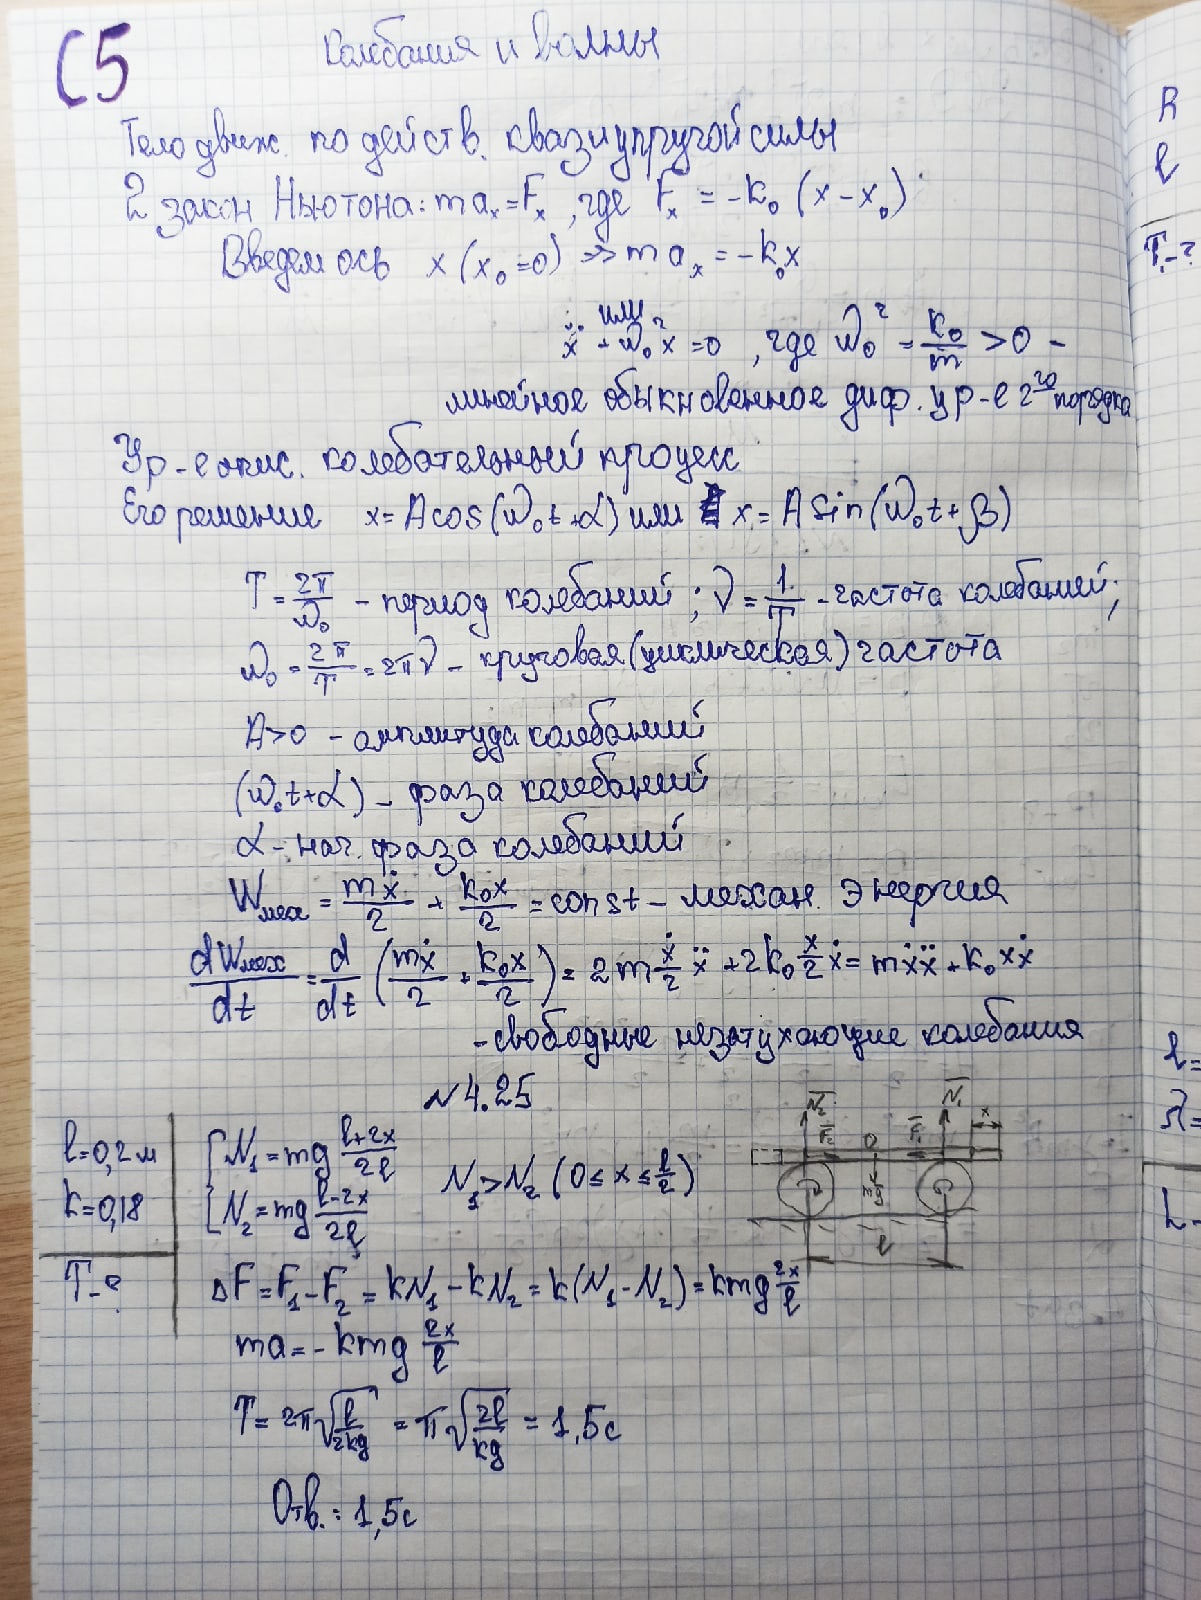 С5
Колебания и волны
Тело движ. по действ. квазиупругой силы
2 закон Ньютона: maₓ = Fₓ, где Fₓ = -k₀ (x - x₀)
Введем ось x (x₀ = 0) => maₓ = -k₀x
или
ẍ + ω₀²x = 0, где ω₀² = k₀/m > 0 -
линейное обыкновенное диф. ур-е 2го порядка
Ур-е опис. колебательный процесс
Его решение x = A cos(ω₀t + α) или x = A sin(ω₀t + β)
T = 2π/ω₀ - период колебаний; ν = 1/T - частота колебаний;
ω₀ = 2π/T = 2πν - круговая (циклическая) частота
A > 0 - амплитуда колебаний
(ω₀t + α) - фаза колебаний
α - нач. фаза колебаний
Wмех = mẋ/2 + k₀x/2 = const - механ. энергия
dWмех/dt = d/dt (mẋ/2 + k₀x/2) = 2m ẋ/2 ẍ + 2k₀ x/2 ẋ = mẋẍ + k₀xẋ
- свободные незатухающие колебания
N 4.25
l = 0,2 м
k = 0,18
T - ?
N₁ = mg (l+2x)/2l
N₂ = mg (l-2x)/2l
N₁ > N₂ (0 ≤ x ≤ l/2)
N₂ N₁ x
F₂ O F₁
mg
l
ΔF = F₁ - F₂ = kN₁ - kN₂ = k(N₁ - N₂) = kmg 2x/l
ma = -kmg 2x/l
T = 2π√(l/2kg) = π√(2l/kg) = 1,5с
Отв.: 1,5с
R
l
T₁ - ?
l =
λ =
L -